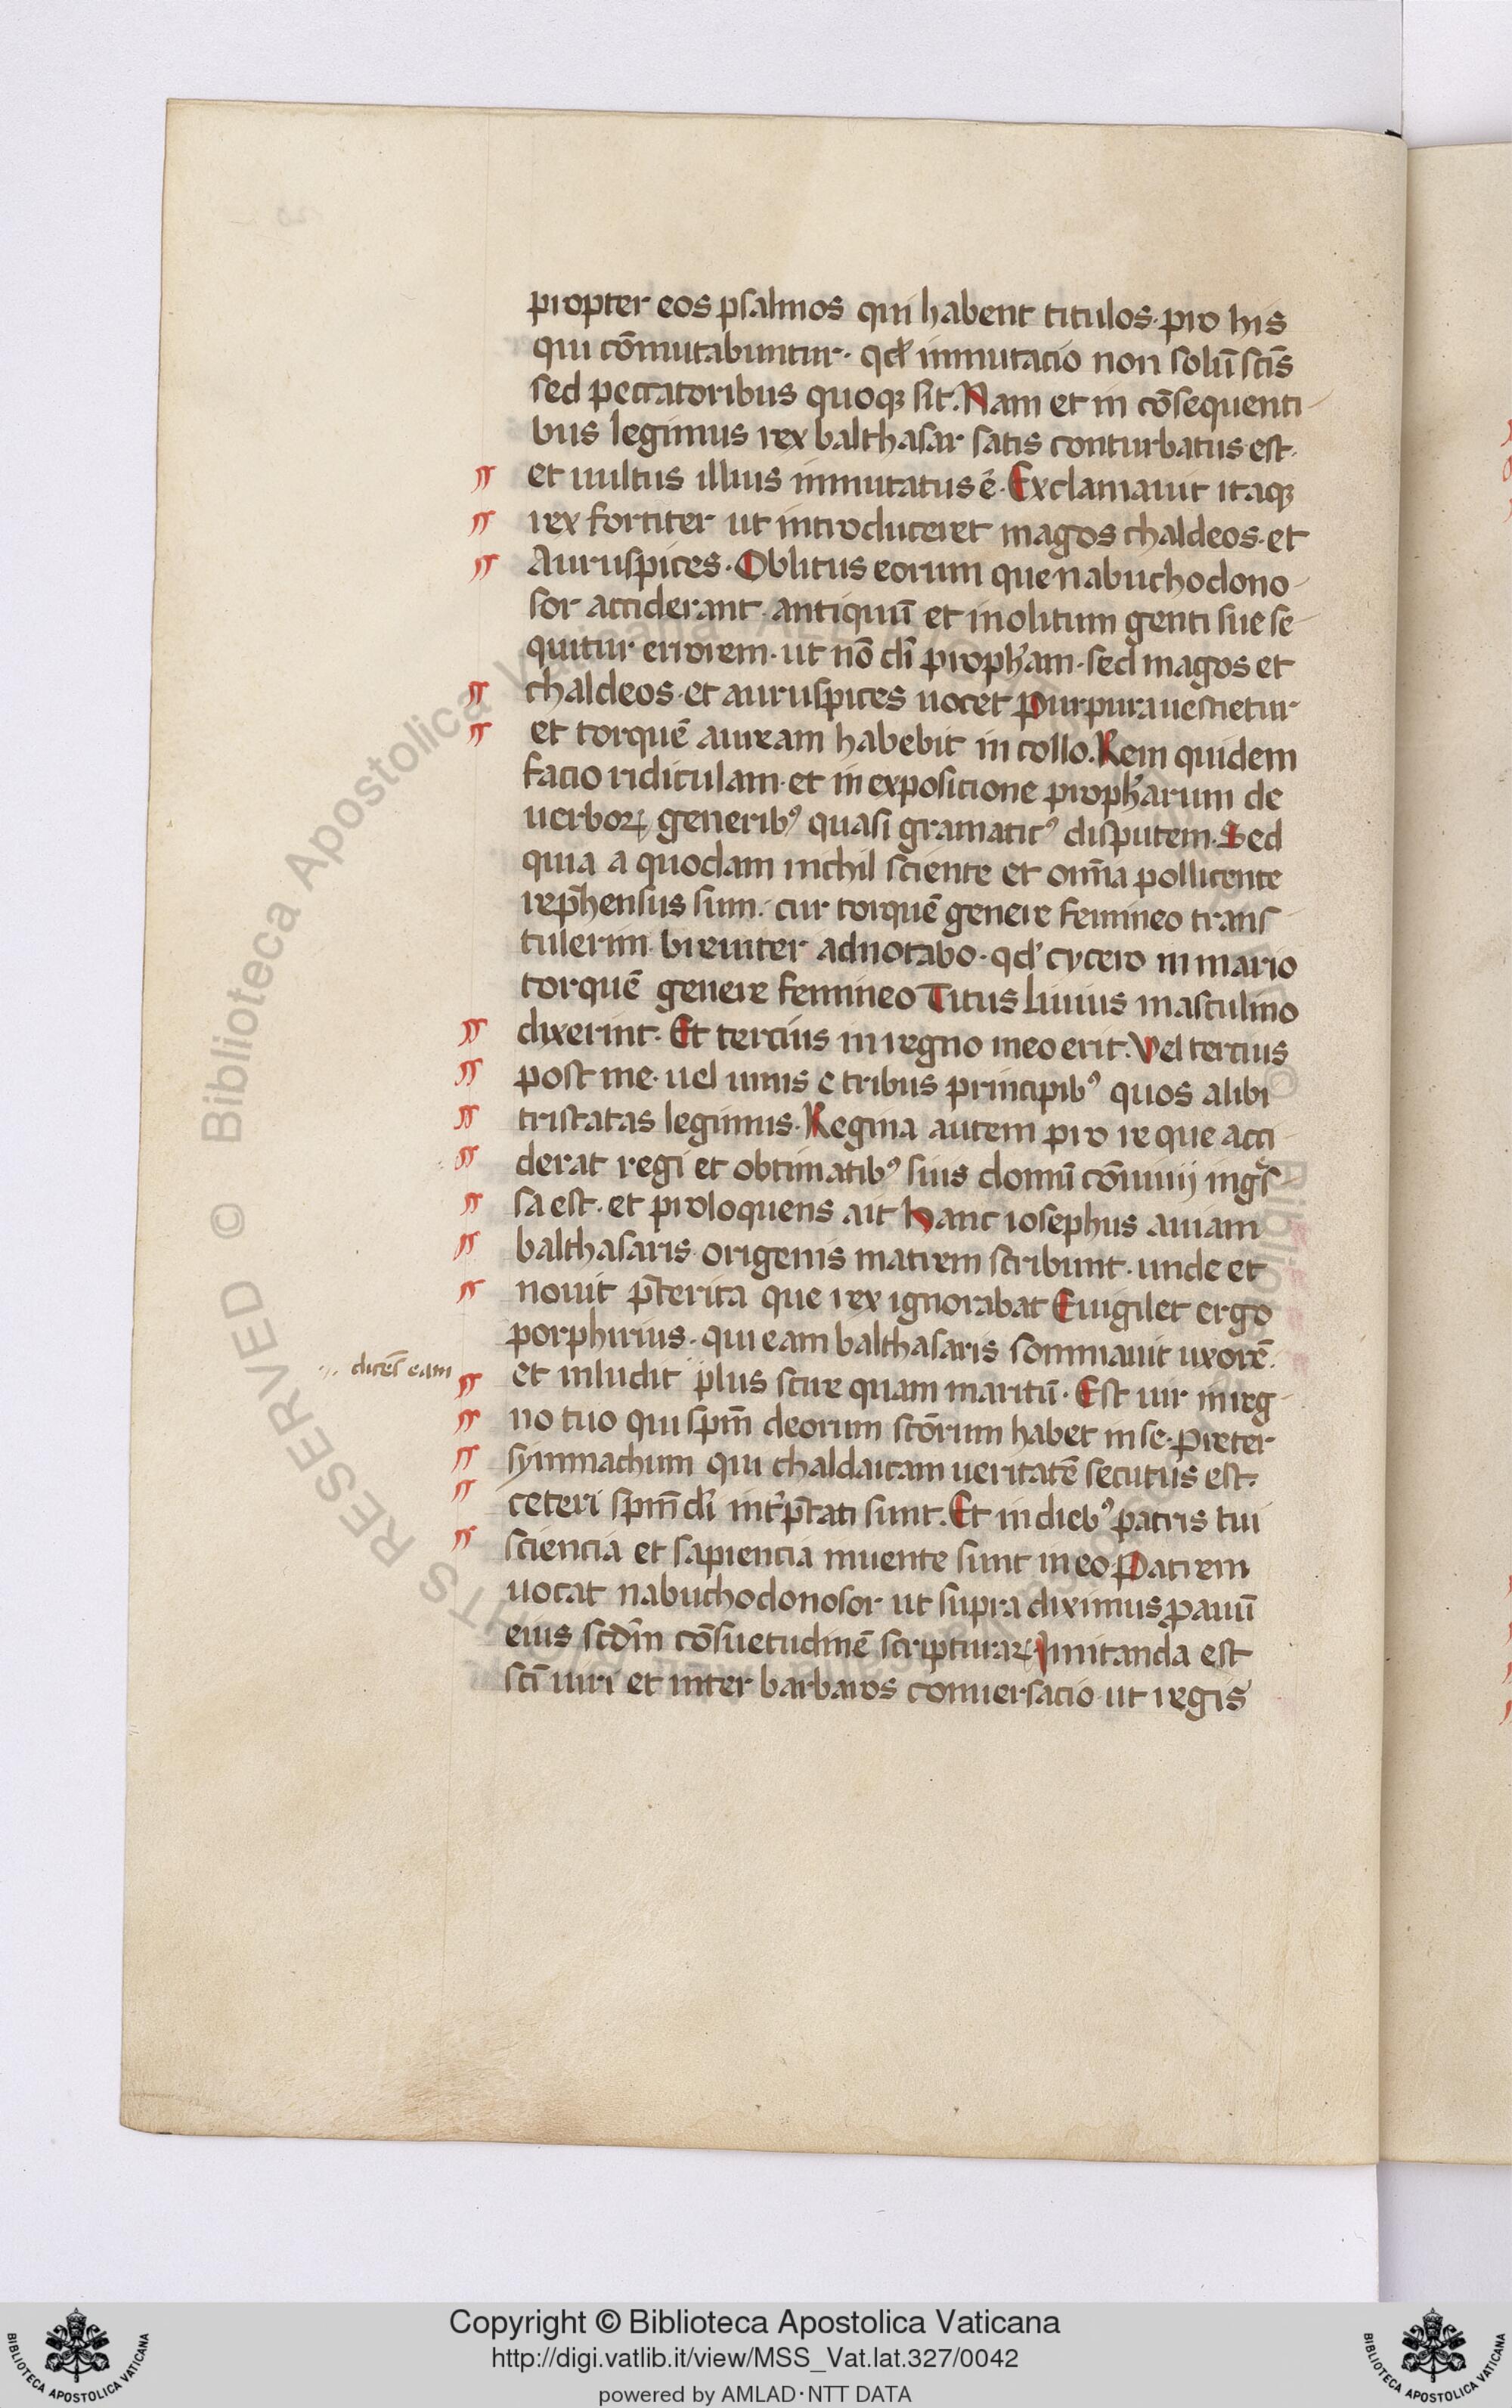 propter eos psalmos qui habent titulos · pro his
qui cōmutabuntur · qđ inmutacio non solū scīs
sed peccatoribus quoq; sit. Nam et in cōsequenti-
bus legimus rex balthasar satis conturbatus est ·
et uultus illius inmutatus ē · Exclamauit itaq;
rex fortiter ut introduceret magos chaldeos · et
Auruspices · Oblitus eorum que nabuchodono-
sor acciderant · antiquū et inolitum genti sue se-
quitur errorem · ut nō dī proph̄am · sed magos et
chaldeos · et auruspices uocet Purpura uestietur
et torquē auream habebit in collo. Rem quidem
facio ridiculam · et in exposicione proph̄arum de
uerboꝝ generibꝰ quasi gramaticꝰ disputem. Sed
quia a quodam nichil sciente et om̄ia pollicente
rep̄hensus sum · cur torquē genere femineo trans-
tulerim · breuiter adnotabo · qđ cycero in mario
torquē genere femineo Titus Liuius masculino
dixerint · Et tercius in regno meo erit. Vel tercius
post me · uel unus e tribus principibꝰ quos alibi
tristatas legimus · Regina autem pro re que acci-
derat regi et obtimatibꝰ suis domū cōuiuij ingr̃s
sa est · et proloquens ait Hanc iosephus auiam
balthasaris · origenis matrem scribunt · unde et
nouit p̄terita que rex ignorabat Euigilet ergo
porphirius · qui eam balthasaris somniauit uxorē ·
dicēs eam
et inludit plus scire quam maritū · Est uir in reg-
no tuo qui spm̄ deorum scōrum habet in se · Preter
symmachum qui chaldaicam ueritatē secutus est ·
ceteri spm̄ dī int̄p̄tati sunt. Et in diebꝰ patris tui
sciencia et sapiencia inuente sunt in eo Patrem
uocat nabuchodonosor ut supra diximus proauū
eius scd̄m cōsuetudinē scripturaꝝ Imitanda est
scī uiri et inter barbaros conuersacio ut regis
Copyright © Biblioteca Apostolica Vaticana
http://digi.vatlib.it/view/MSS_Vat.lat.327/0042
powered by AMLAD·NTT DATA